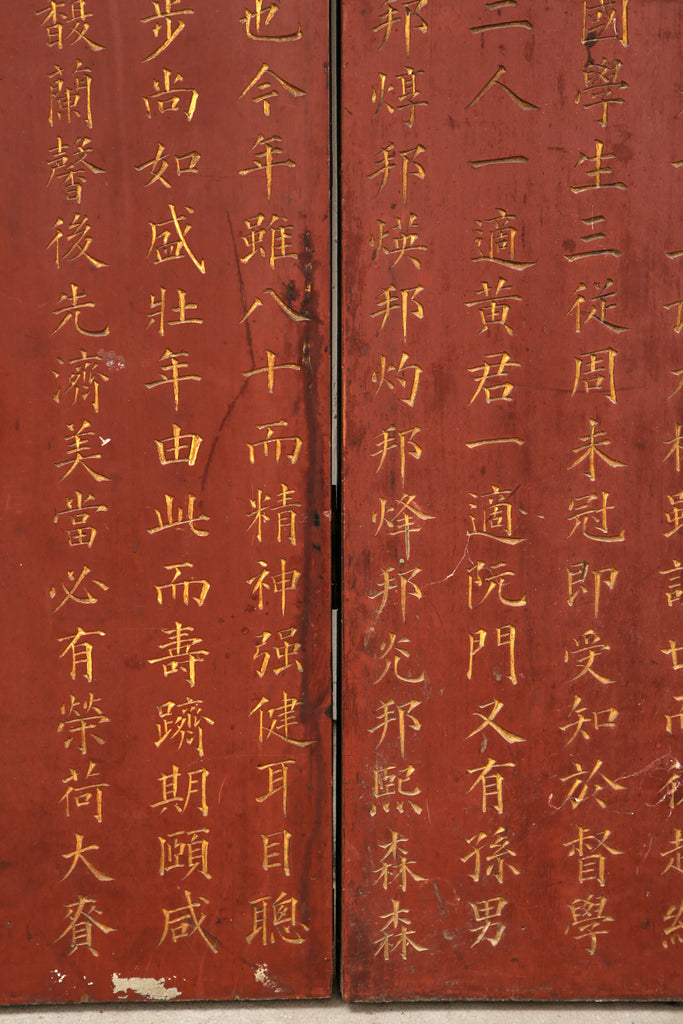 國學生三從周未冠即受知於督學
二人一適黃君一適阮門又有孫男
邦焞邦煐邦灼邦烽邦灮邦熙森森
也今年雖八十而精神强健耳目聰
步尚如盛壯年由此而壽躋期頤咸
馥蘭馨後先濟美當必有榮荷大賚